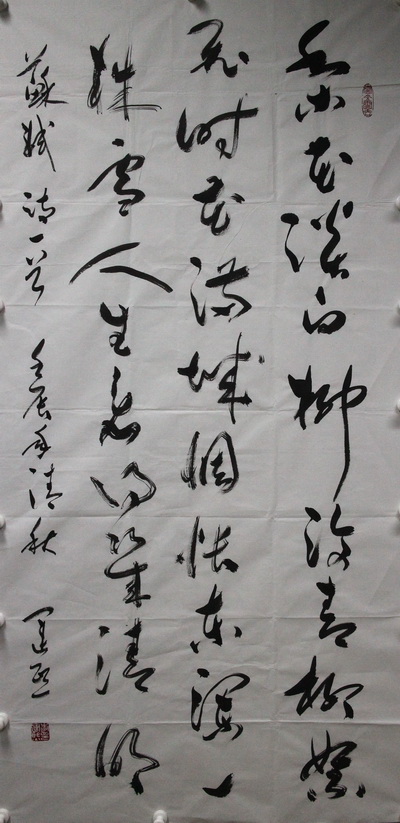 梨花淡白柳深青柳絮
飛時花滿城惆悵東欄一
株雪人生看得幾清明
蘇軾詩一首 壬辰年清秋